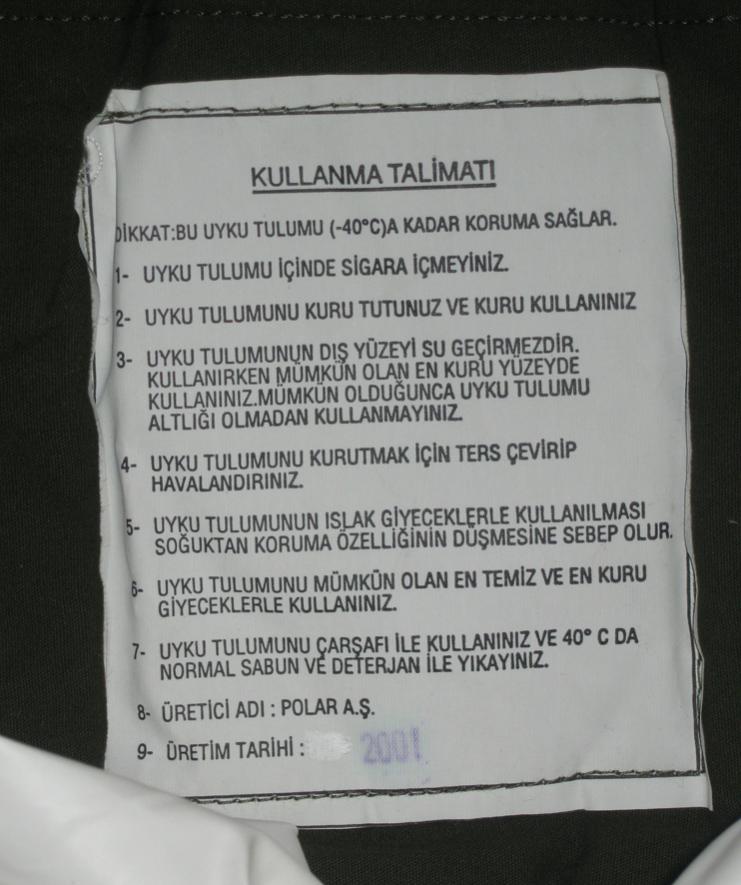 KULLANMA TALİMATI
DİKKAT:BU UYKU TULUMU (-40°C)A KADAR KORUMA SAĞLAR.
1- UYKU TULUMU İÇİNDE SİGARA İÇMEYİNİZ.
2- UYKU TULUMUNU KURU TUTUNUZ VE KURU KULLANINIZ
3- UYKU TULUMUNUN DIŞ YÜZEYİ SU GEÇİRMEZDİR.
KULLANIRKEN MÜMKÜN OLAN EN KURU YÜZEYDE
KULLANINIZ.MÜMKÜN OLDUĞUNCA UYKU TULUMU
ALTLIĞI OLMADAN KULLANMAYINIZ.
4- UYKU TULUMUNU KURUTMAK İÇİN TERS ÇEVİRİP
HAVALANDIRINIZ.
5- UYKU TULUMUNUN ISLAK GİYECEKLERLE KULLANILMASI
SOĞUKTAN KORUMA ÖZELLİĞİNİN DÜŞMESİNE SEBEP OLUR.
6- UYKU TULUMUNU MÜMKÜN OLAN EN TEMİZ VE EN KURU
GİYECEKLERLE KULLANINIZ.
7- UYKU TULUMUNU ÇARŞAFI İLE KULLANINIZ VE 40° C DA
NORMAL SABUN VE DETERJAN İLE YIKAYINIZ.
8- ÜRETİCİ ADI : POLAR A.Ş.
9- ÜRETİM TARİHİ : 2001